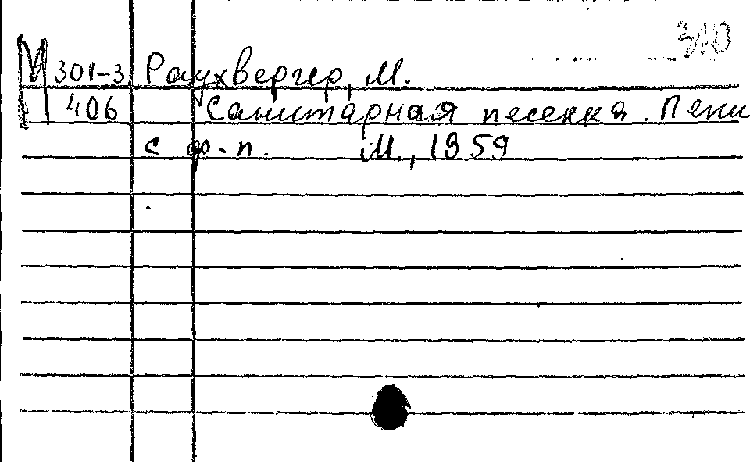 310
М 301-3 Раухвергер, М.
406 Санитарная песенка. Пени
с ф.-п. М., 1959